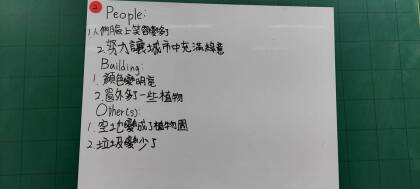 2
People:
1.人們臉上笑容變多了
2.努力讓城市中充滿綠意
Building:
1.顏色變明亮
2.窗外多了一些植物
Other(s):
1.空地變成了植物園
2.垃圾變少了